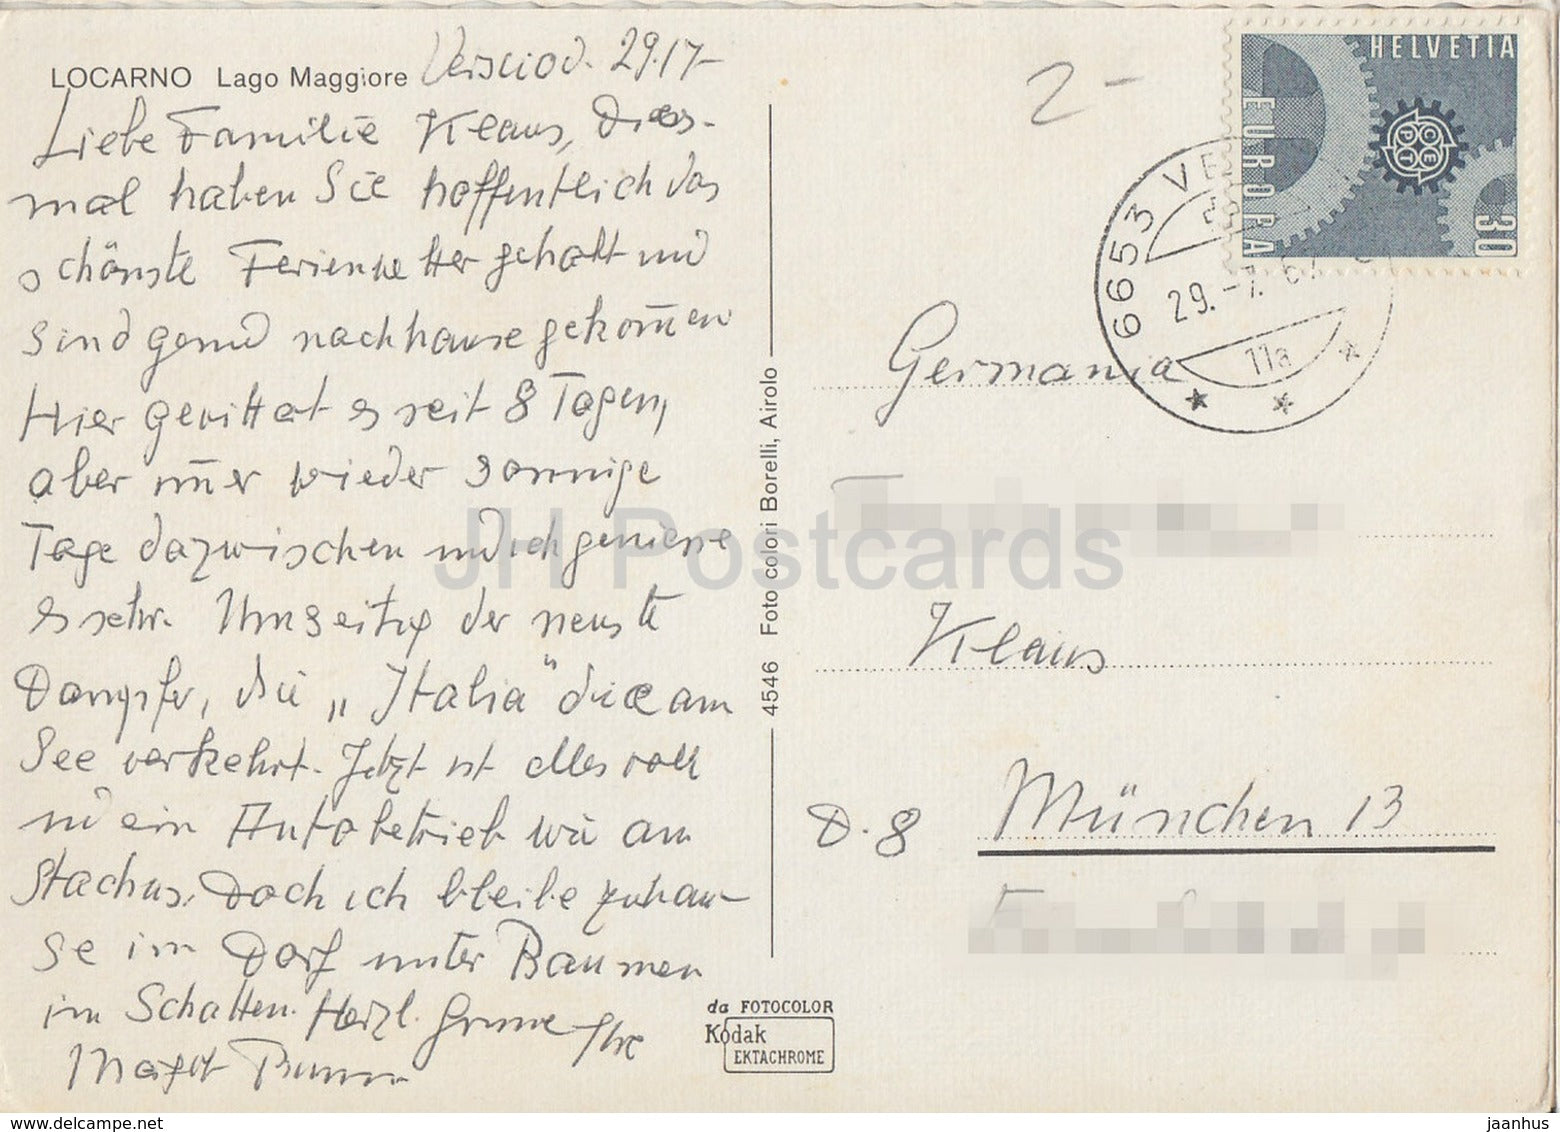 LOCARNO Lago Maggiore Verscio d. 29.17-
Liebe Familie Klaus, dies-
mal haben Sie hoffentlich das
schönste Ferienwetter gehabt und
sind gesund nachhause gekom̅en
Hier gewittert es seit 8 Tagen,
aber im̅er wieder sonnige
Tage dazwischen und ich geniesse
es sehr. Umseitig der neuste
Dampfer, die „Italia" die am
See verkehrt. Jetzt ist alles voll
und ein Autobetrieb wie am
Stachus. Doch ich bleibe zuhau-
se im Dorf unter Bäumen
im Schatten. Herzl. Grüsse Ihre
Margot
4546 Foto colori Borelli, Airolo
da FOTOCOLOR
Kodak
EKTACHROME
2-
HELVETIA
EUROPA
CEPT
30
6653 VE
29.-7.67
11a
Germania
Klaus
D-8 München 13
JH Postcards
www.delcampe.net
jaanhus